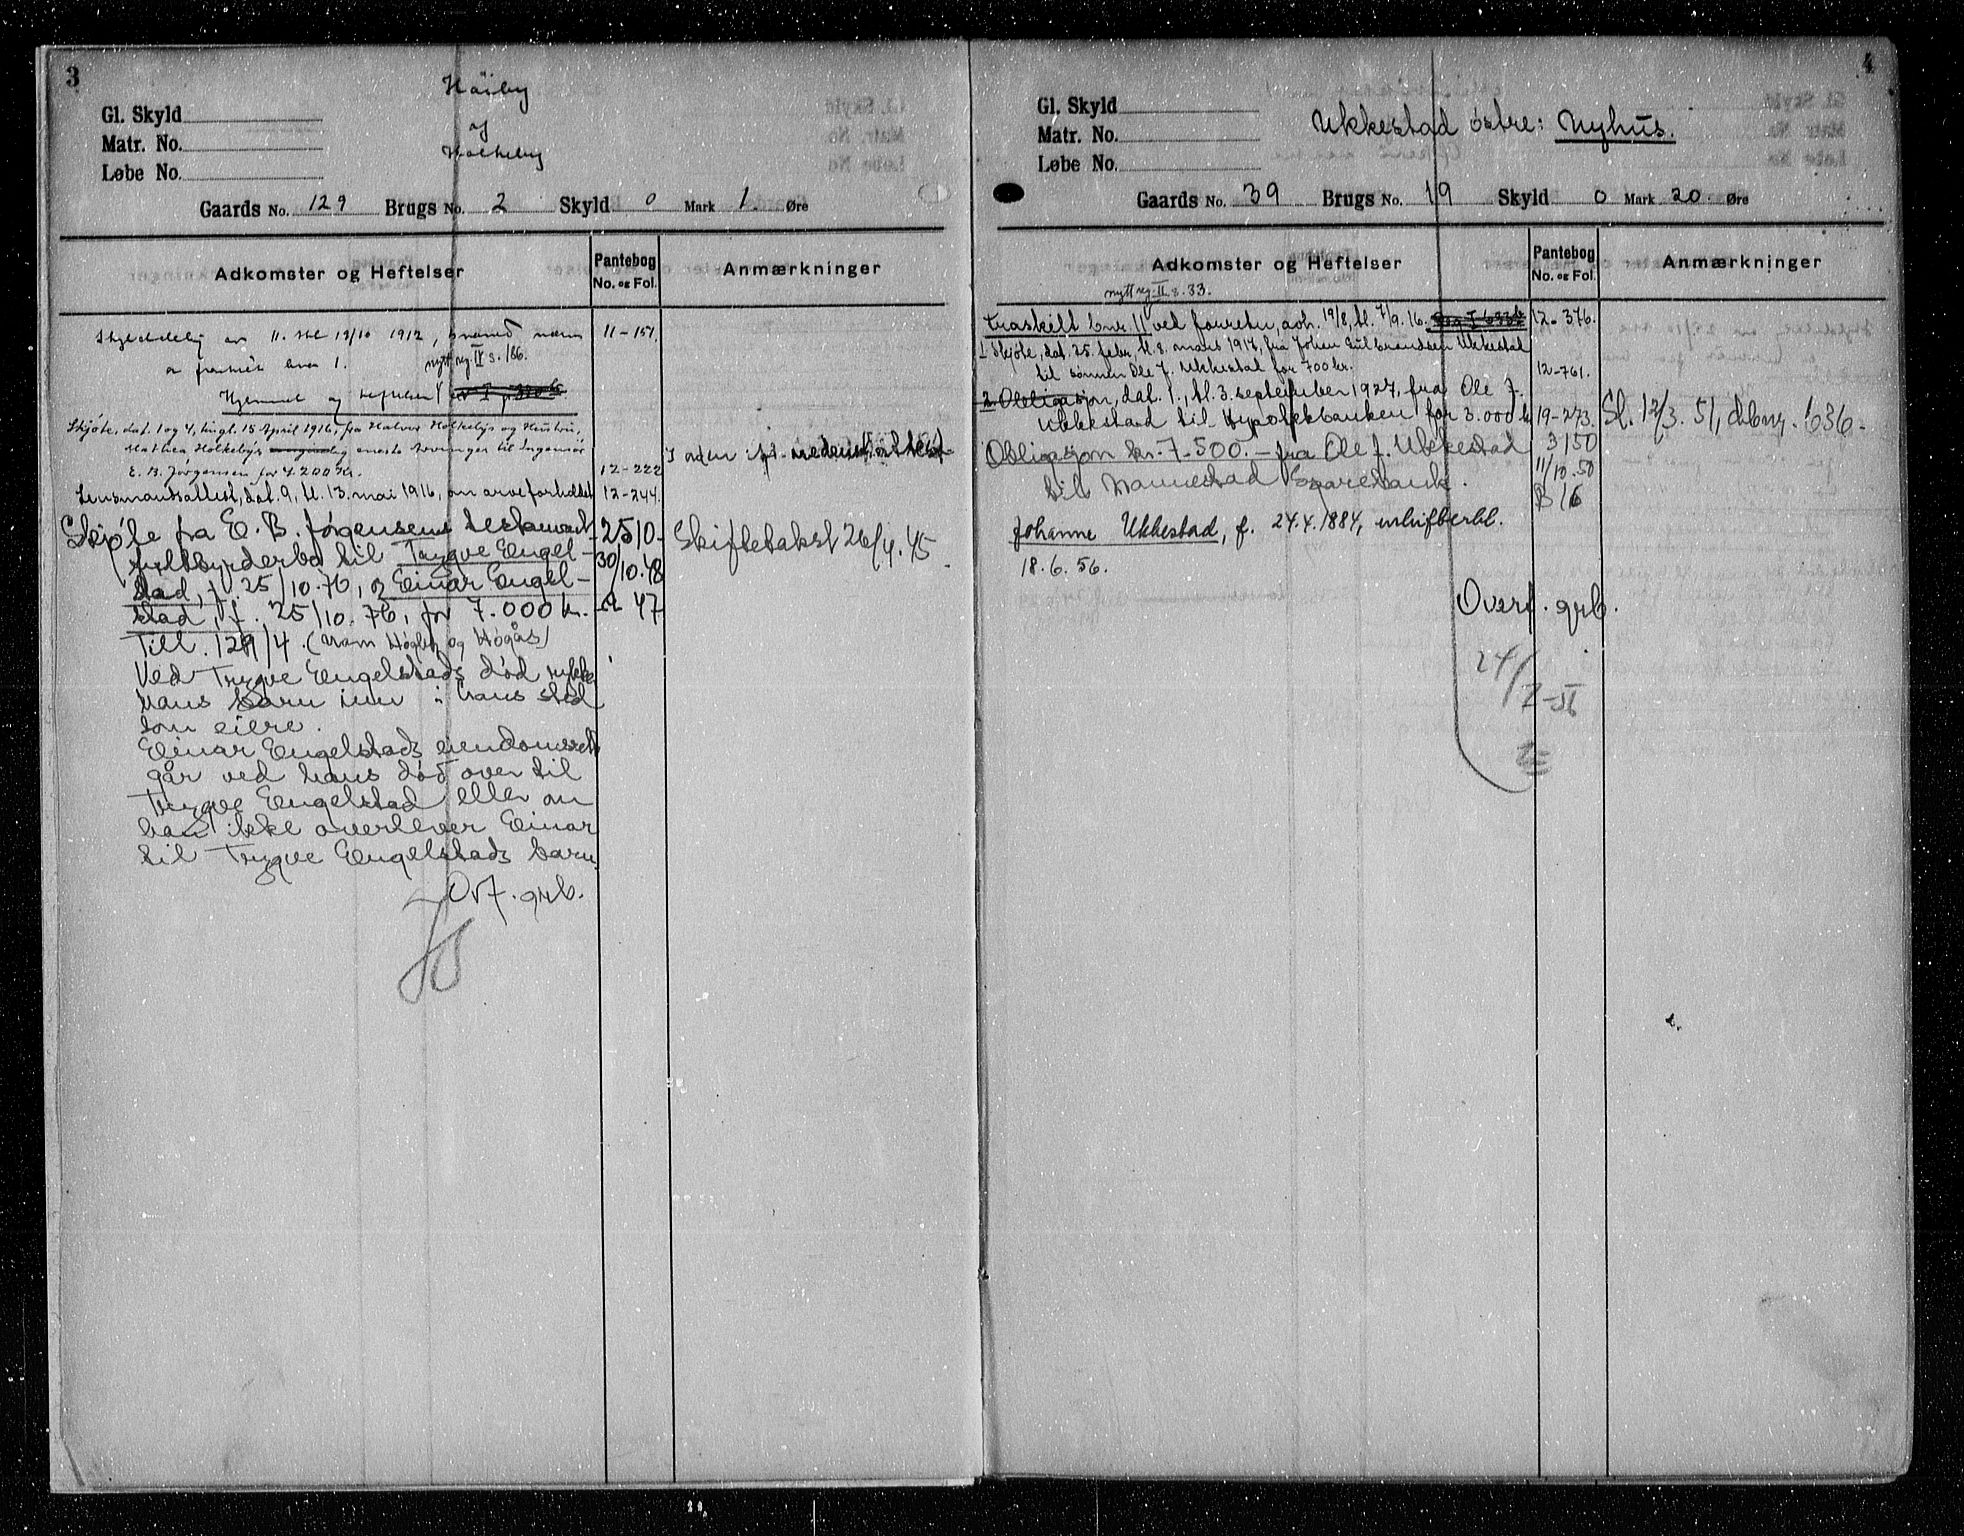 3
Høiby
Gl. Skyld
Matr. No.
Løbe No.
Gaards No. 129 Brugs No. 2 Skyld 0 Mark 1. Øre
Adkomster og Heftelser
Pantebog
No. og Fol.
Anmærkninger
11-151.
nytt reg. IV s. 186.
Hjemmel og heftelser
Skjøte, dat. 1 og 4, tingl. 15 April 1916, fra Halvor Holkebys og Hustru,
Mathea Holkebys eneste Arvinger til Ingeniør
E. B. Jørgensen for 4.200 Kr.
12-222
Lensmansattest, dat. 9, tl. 13. mai 1916, om arveforholdet
12-244.
Skjøte fra E. B. Jørgensens testament-
fullbyrderbo til Trygve Engel-
stad, f. 25/10.76, og Einar Engel-
stad, f. 25/10.76, for 7.000 kr.
2510-
30/10.48
47
Skiftetakst 26/4.45
Till. 129/4. (navn Høgby og Høgås)
Ved Trygve Engelstads død rykke
hans barn inn i hans sted
som eiere.
Einar Engelstads eiendomsrett
går ved hans død over til
Trygve Engelstad eller om
han ikke overlever Einar
til Trygve Engelstads barn.
Ovf. grb.
4
Gl. Skyld
Matr. No.
Løbe No.
Ukkestad østre: Nyhus.
Gaards No. 39 Brugs No. 19 Skyld 0 Mark 20. Øre
Adkomster og Heftelser
Pantebog
No. og Fol.
Anmærkninger
nytt reg. II s. 33.
Fraskilt bnr. 11 ved forretn. avh. 19/8, tl. 7/9.16.
12-376.
1 Skjøte, dat. 25. febr., tl. 8. mars 1917, fra Johan Gulbrandsen Ukkestad
til sønnen Ole J. Ukkestad for 700 kr.
12-761.
2 Obligasjon, dat. 1., tl. 3. september 1927, fra Ole J.
Ukkestad til Hypotekbanken for 3.000 kr
19-273.
Sl. 12/3. 51, dbnr. 636-
Obligasjon kr. 7.500.- fra Ole J. Ukkestad
til Nannestad Sparebank.
3150
11/10.50
B 16
Johanne Ukkestad, f. 24.4.1884, uskiftebevl.
18.6.56.
Overf. grb.
24/7-56